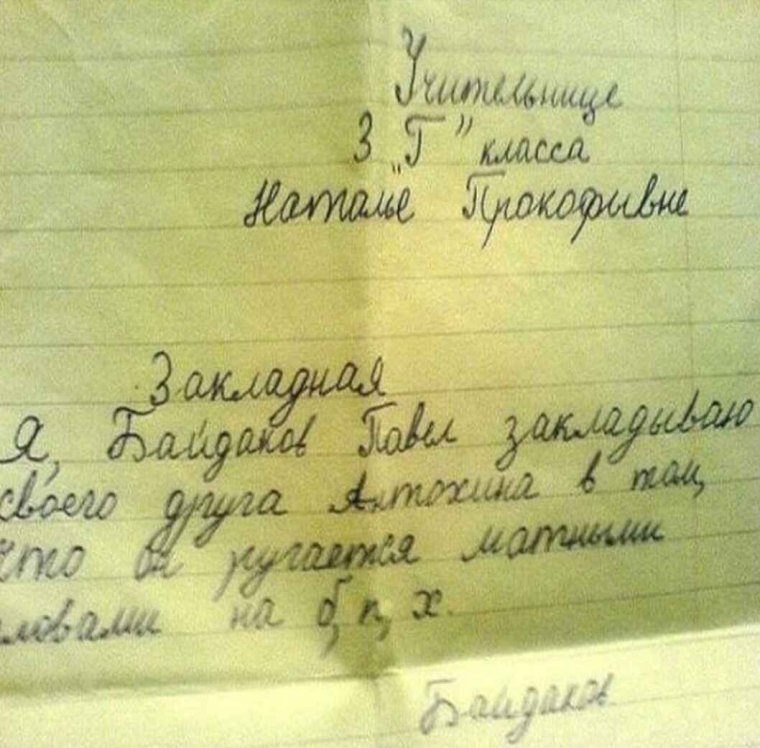 Учительнице
3 „Г" класса
Наталье Прокофывне
Закладная
Я, Байдаков Павел закладываю
своего друга Алтохина в том,
что он ругается матными
словами на б, п, х.
Байдаков